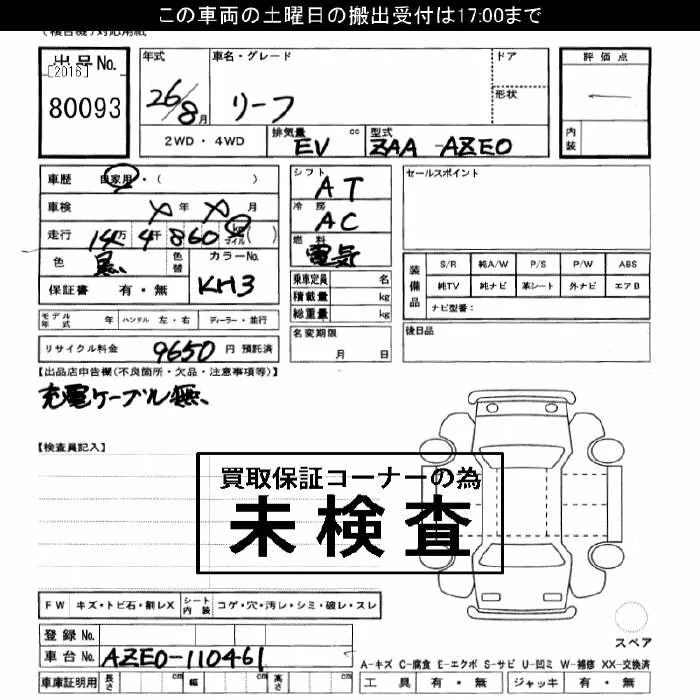 この車両の土曜日の搬出受付は17:00まで
出品No.
[2016]
80093
年式
26/8月
車名・グレード
リーフ
ドア
形状
評価点
内装
2WD・4WD
排気量 cc
EV
型式
ZAA-AZE0
車歴 自家用・( )
車検 年 月
走行 14万4千860 km マイル ( )
色 黒
色替
カラーNo.
KH3
保証書 有・無
シフト
AT
冷房
AC
燃料
電気
乗車定員 名
積載量 kg
総重量 kg
セールスポイント
装備品
S/R 純A/W P/S P/W ABS
純TV 純ナビ 革シート 外ナビ エアB
ナビ型番:
モデル年式 年 ハンドル 左・右 ディーラー・並行
名変期限
月 日
後日品
リサイクル料金 9650 円 預託済
【出品店申告欄(不良箇所・欠品・注意事項等)】
充電ケーブル無、
【検査員記入】
買取保証コーナーの為
未検査
FW キズ・トビ石・割レX シート内装 コゲ・穴・汚レ・シミ・破レ・スレ
スペア
登録No.
車台No. AZE0-110461
A-キズ C-腐食 E-エクボ S-サビ U-凹ミ W-補修 XX-交換済
車庫証明用 長さ cm 幅 cm 高さ cm
工具 有・無 ジャッキ 有・無